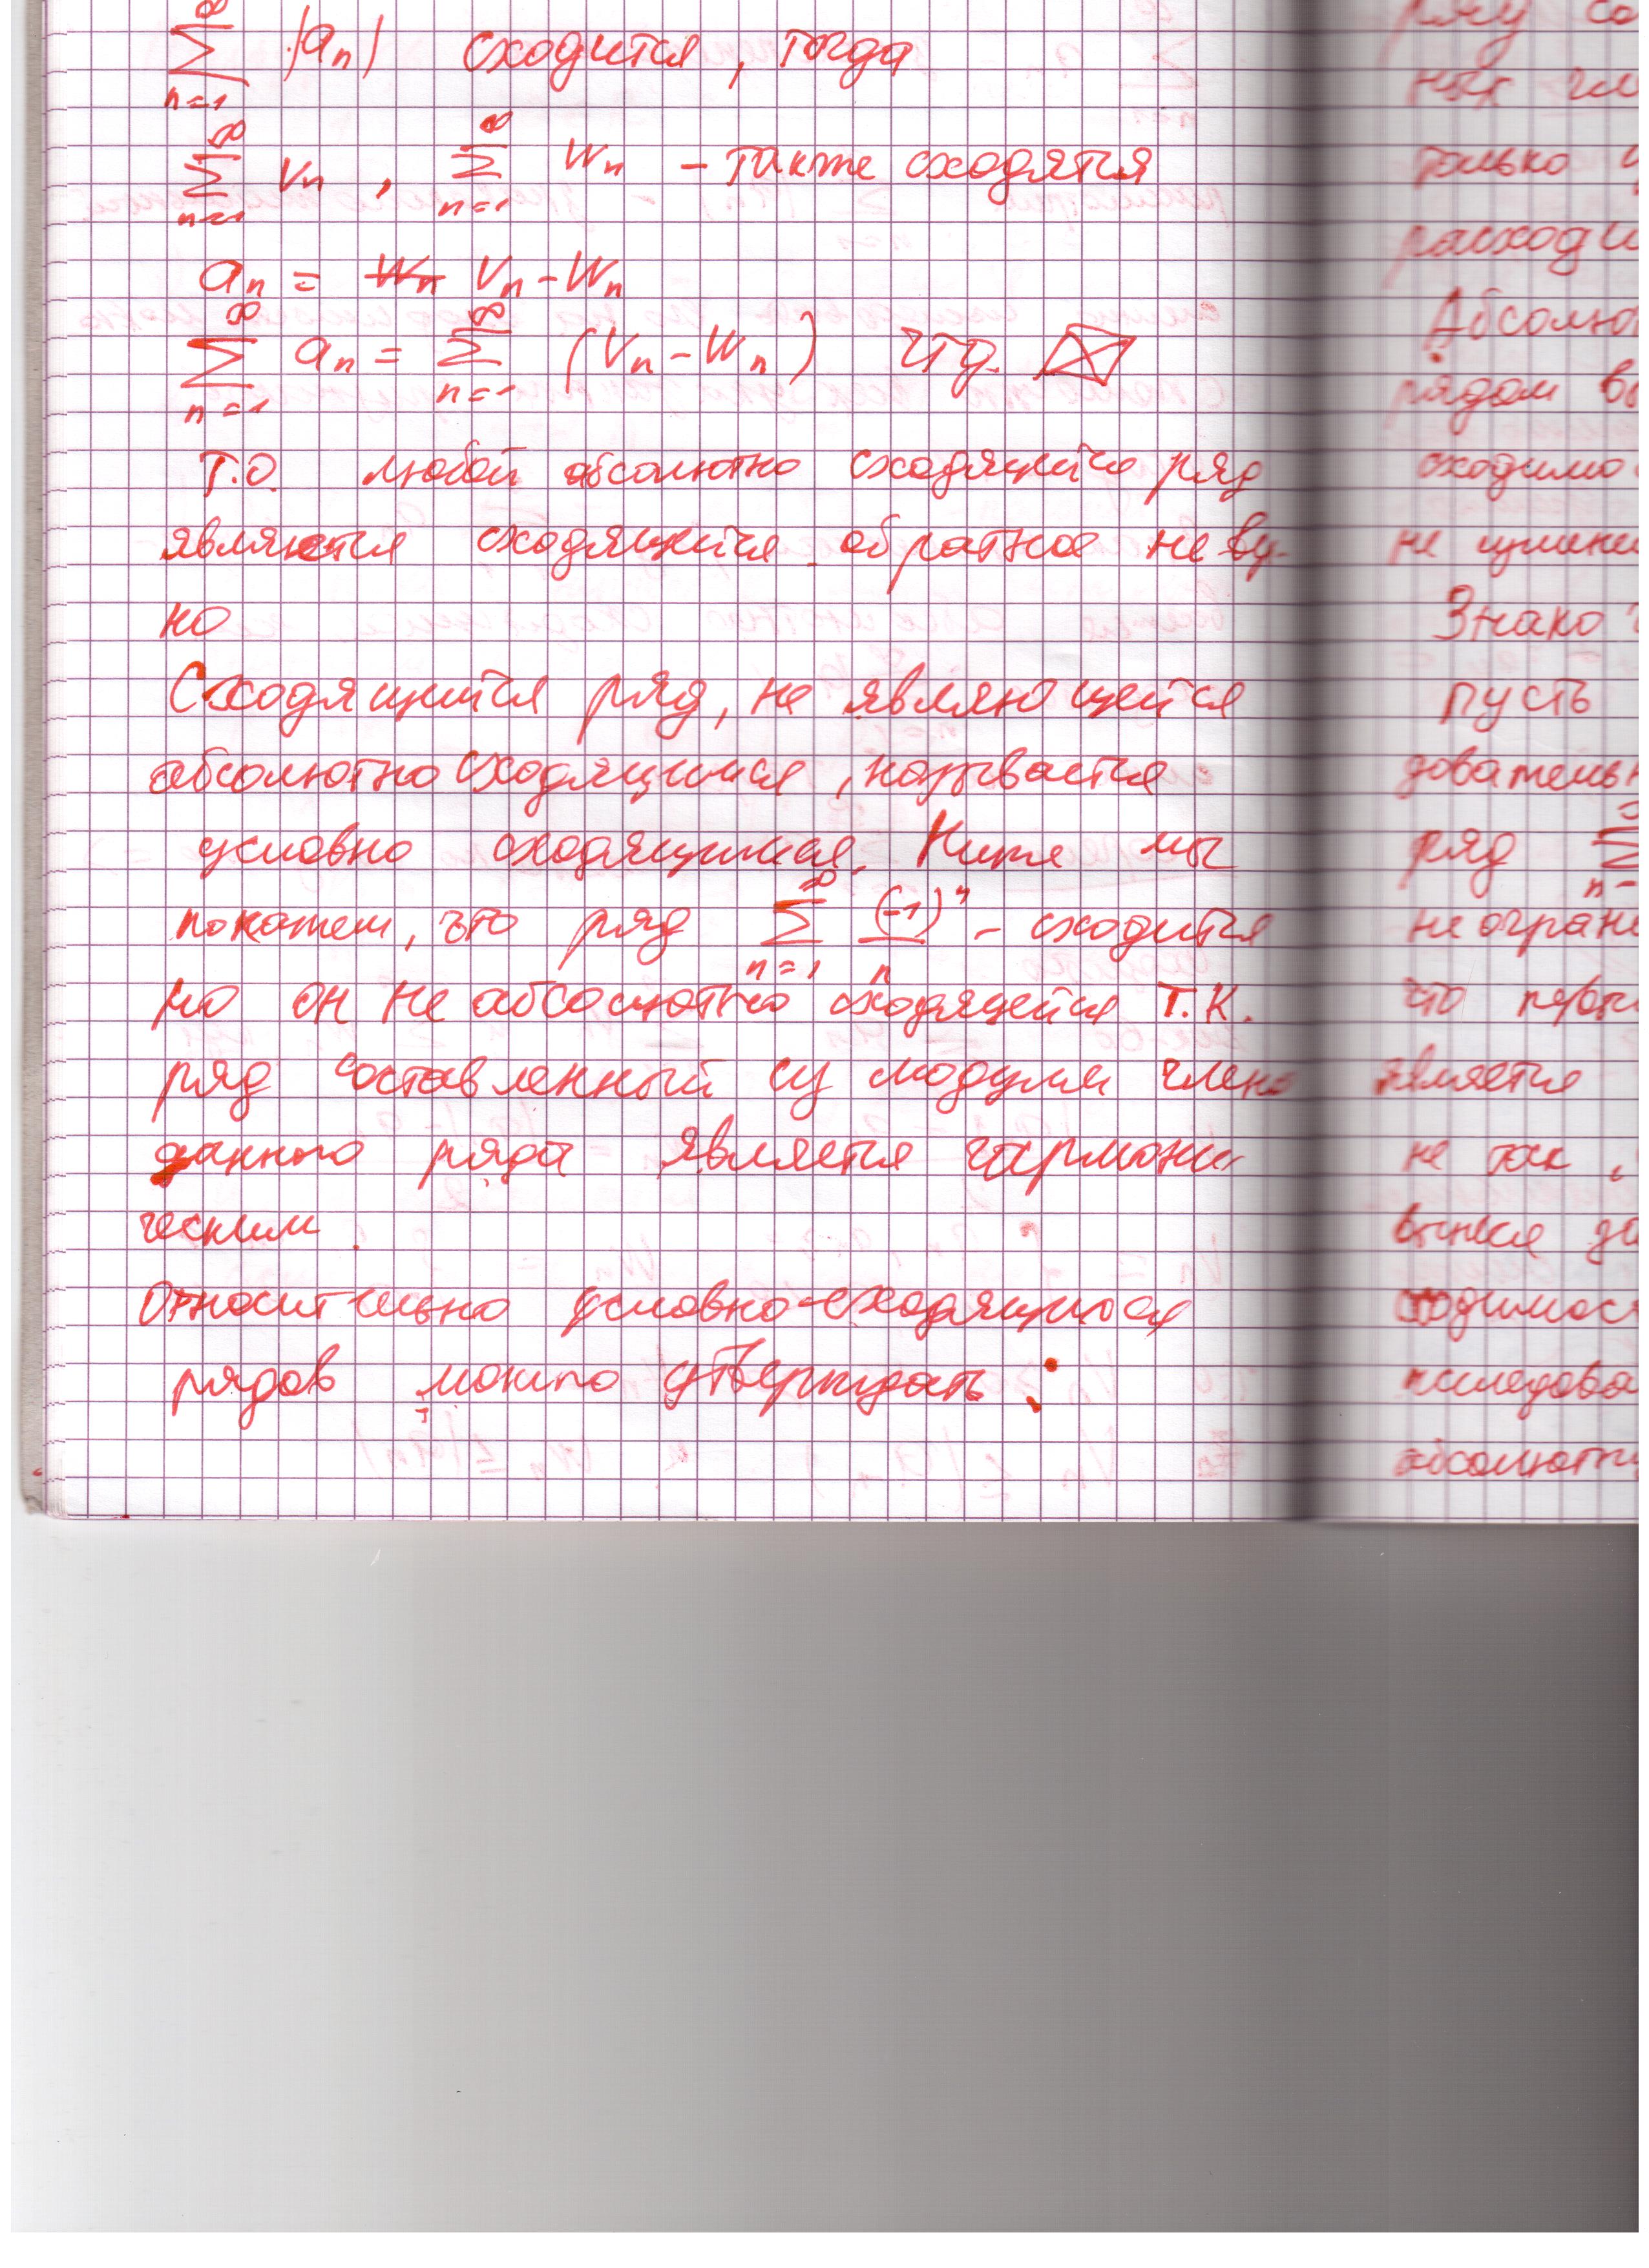 ∑_{n=1}^{∞} |a_n| сходится, тогда
∑_{n=1}^{∞} v_n , ∑_{n=1}^{∞} w_n - также сходятся
a_n = v_n - w_n
∑_{n=1}^{∞} a_n = ∑_{n=1}^{∞} (v_n - w_n) чтд.
Т.О. любой абсолютно сходящийся ряд
является сходящийся обратное не
но
Сходящийся ряд, не являющейся
абсолютно сходящимся, называется
условно сходящимся. Ниже мы
покажем, что ряд ∑_{n=1}^{∞} (-1)^n/n - сходится
но он не абсолютно сходящейся т.к.
ряд составленный из модулей члено
данного ряда является гармони
ческим.
Относительно условно-сходящихся
рядов можно утверждать :
ряду со
ных
только
расход
Абсолют
рядом
сходимо
не
Знако
пусть
довательн
ряд ∑
не огран
что
является
не так,
вынося
сходимос
последова
абсолютн